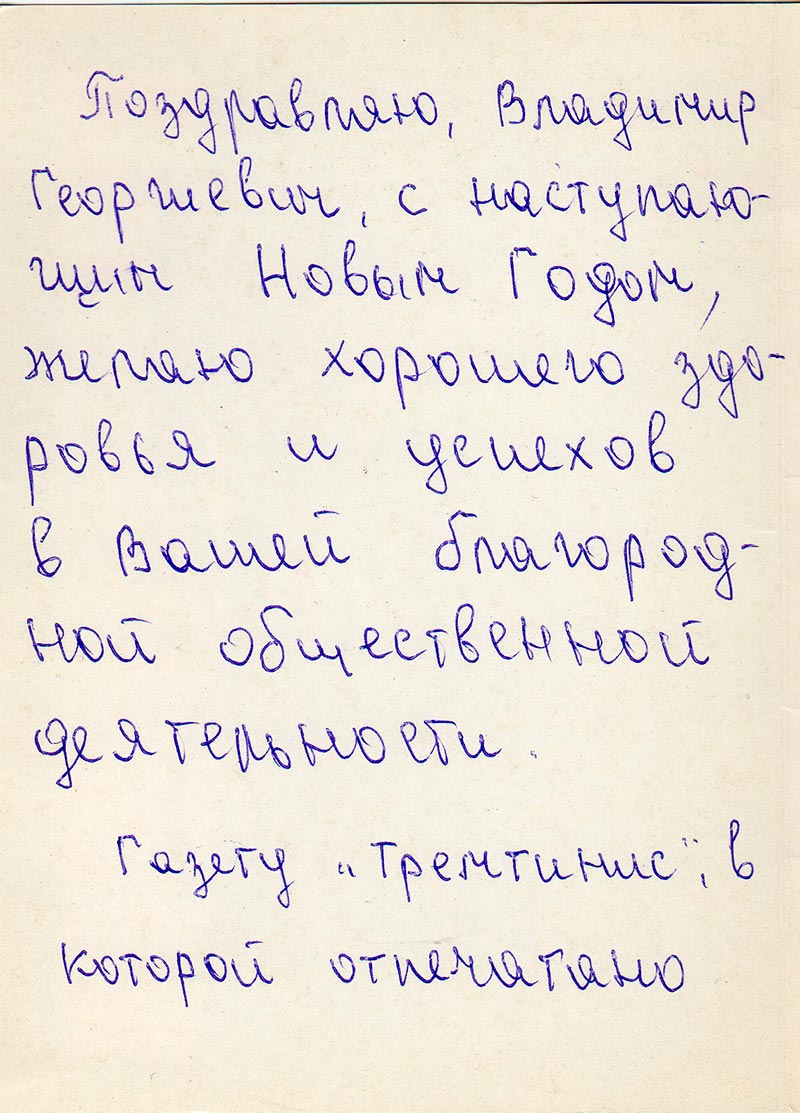 Поздравляю, Владимир
Георгиевич, с наступаю-
щим Новым Годом,
желаю хорошего здо-
ровья и успехов
в Вашей благород-
ной общественной
деятельности.
Газету „Тремтинис", в
которой отпечатано